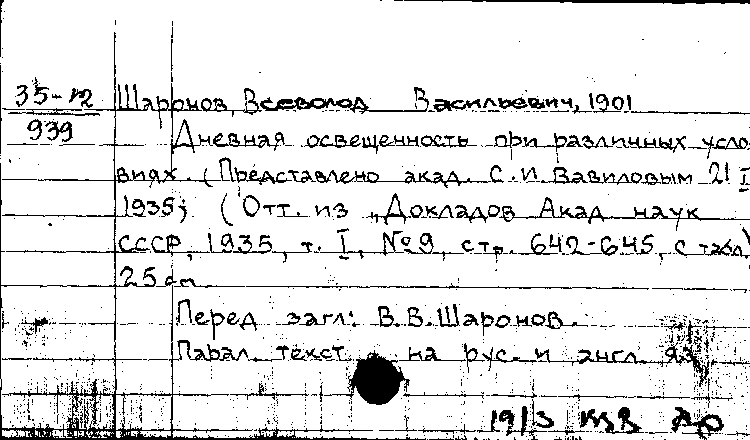 35-12
939
Шаронов, Всеволод Васильевич, 1901
Дневная освещенность при различных усло-
виях. (Представлено акад. С.И. Вавиловым 21 I
1935) (Отт. из „Докладов Акад. наук
СССР, 1935, т. I, №9, стр. 642-645, с табл.)
25 см.
Перед загл: В.В. Шаронов.
Парал. текст на рус. и англ. яз.